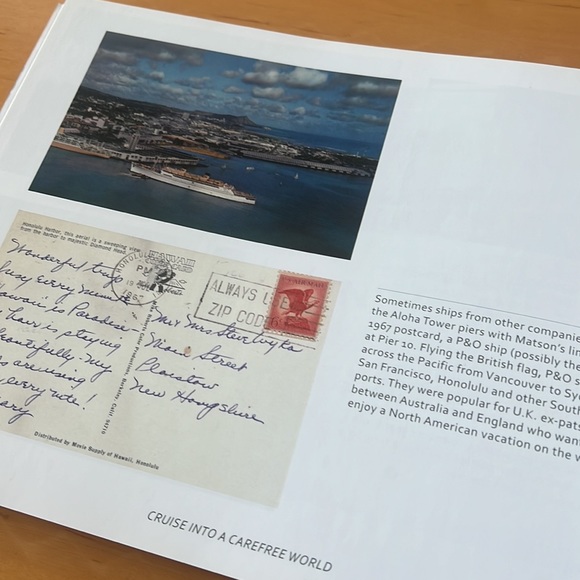 Honolulu Harbor, this aerial is a sweeping view
from the harbor to majestic Diamond Head.
HONOLULU
PM
1967
HAWAII
Wonderful trip
busy every minute
Hawaii is Paradise.
is staying
beautifully. My
are using
every note!
ALWAYS USE
ZIP CODE
AIRMAIL
Mr Mrs Steve
Main Street
Plaistow
New Hampshire
Distributed by Movie Supply of Hawaii, Honolulu
Sometimes ships from other companie
the Aloha Tower piers with Matson's lin
1967 postcard, a P&O ship (possibly the
at Pier 10. Flying the British flag, P&O s
across the Pacific from Vancouver to Syd
San Francisco, Honolulu and other South
ports. They were popular for U.K. ex-pats
between Australia and England who want
enjoy a North American vacation on the w
CRUISE INTO A CAREFREE WORLD